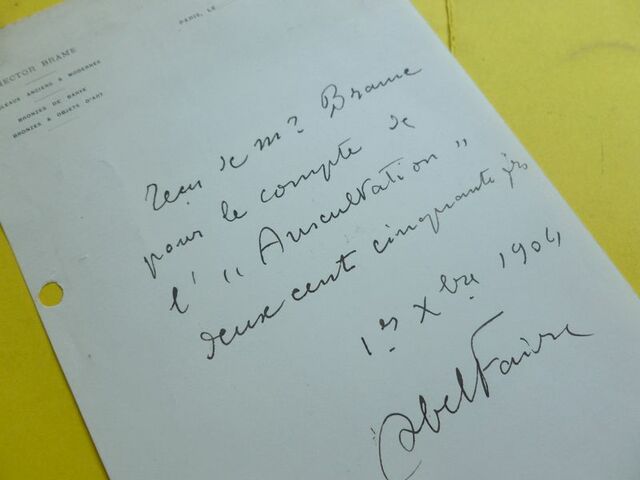 HECTOR BRAME
TABLEAUX ANCIENS & MODERNES
BRONZES DE BARYE
BRONZES & OBJETS D'ART
PARIS, LE
Reçu de Mr Brame
pour le compte de
l' "Auscultation"
deux cent cinquante frs
1er Xbre 1904
Abel Faivre